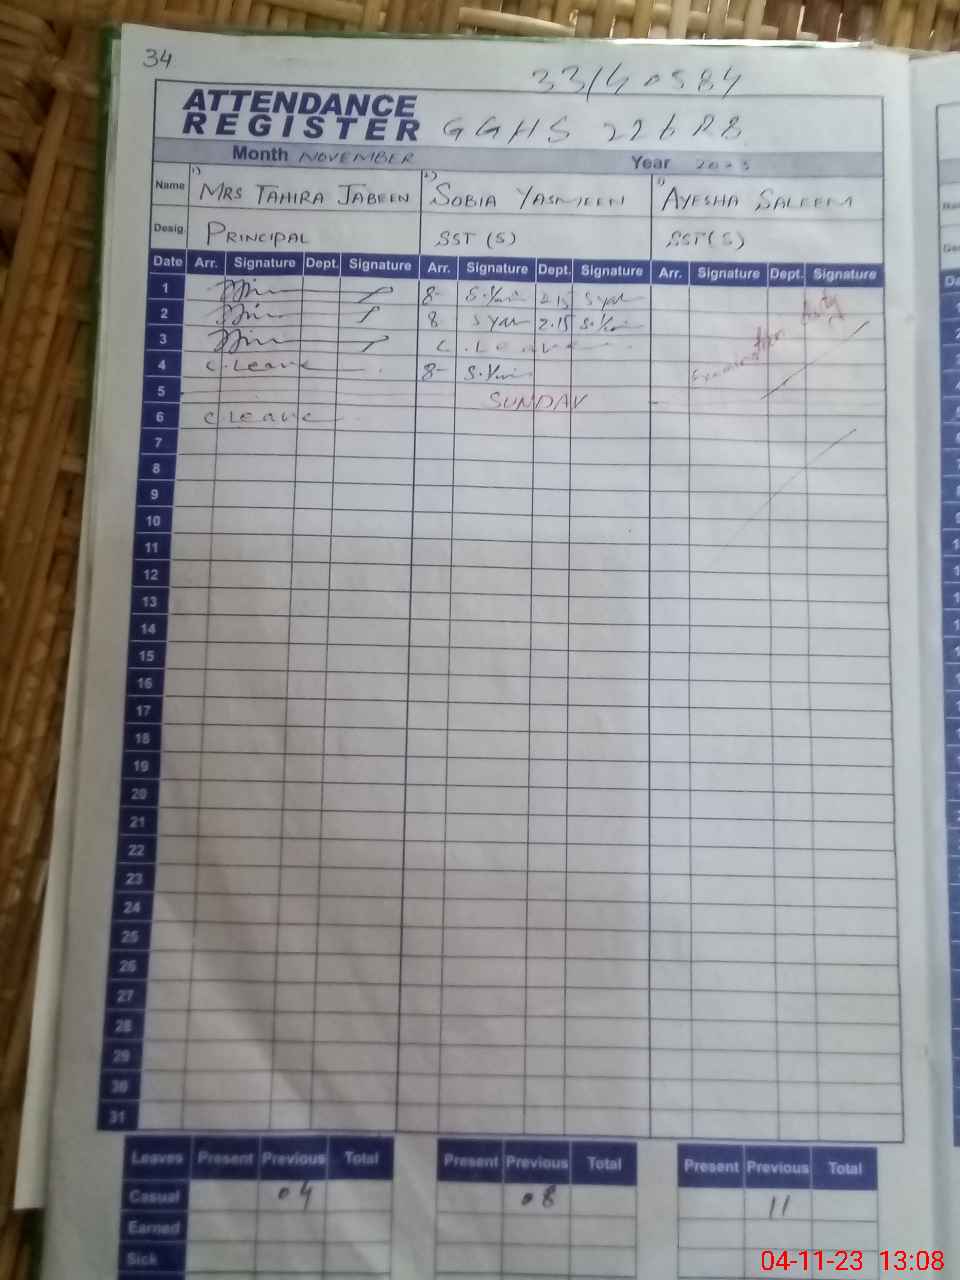 34
33140584
ATTENDANCE
REGISTER GGHS 226 RB
Month NOVEMBER Year 2023
Name 1) MRS TAHIRA JABEEN 2) SOBIA YASMEEN AYESHA SALEEM
Desig. PRINCIPAL SST (S) SST (S)
Date Arr. Signature Dept. Signature Arr. Signature Dept. Signature Arr. Signature Dept. Signature
1 8- 2.15
2 8 2.15
3 C. Leave
4 C. Leave 8-
5 SUNDAY
6 C. Leave
Examination duty
7
8
9
10
11
12
13
14
15
16
17
18
19
20
21
22
23
24
25
26
27
28
29
30
31
Leaves Present Previous Total Present Previous Total Present Previous Total
Casual 04 08 11
Earned
Sick
04-11-23 13:08